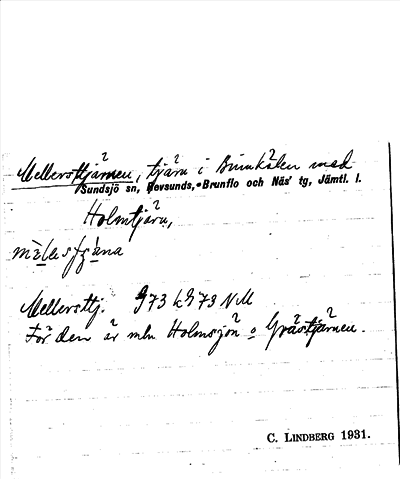 Mellersttjärnen, tjärn i Binnkölen med
Sundsjö sn, Revsunds, Brunflo och Näs' tg, Jämtl. l.
Holmtjärn,
Mellersttj. 973 k 973 NM
För den är mln Holmsjön o Grästjärnen.
C. LINDBERG 1931.